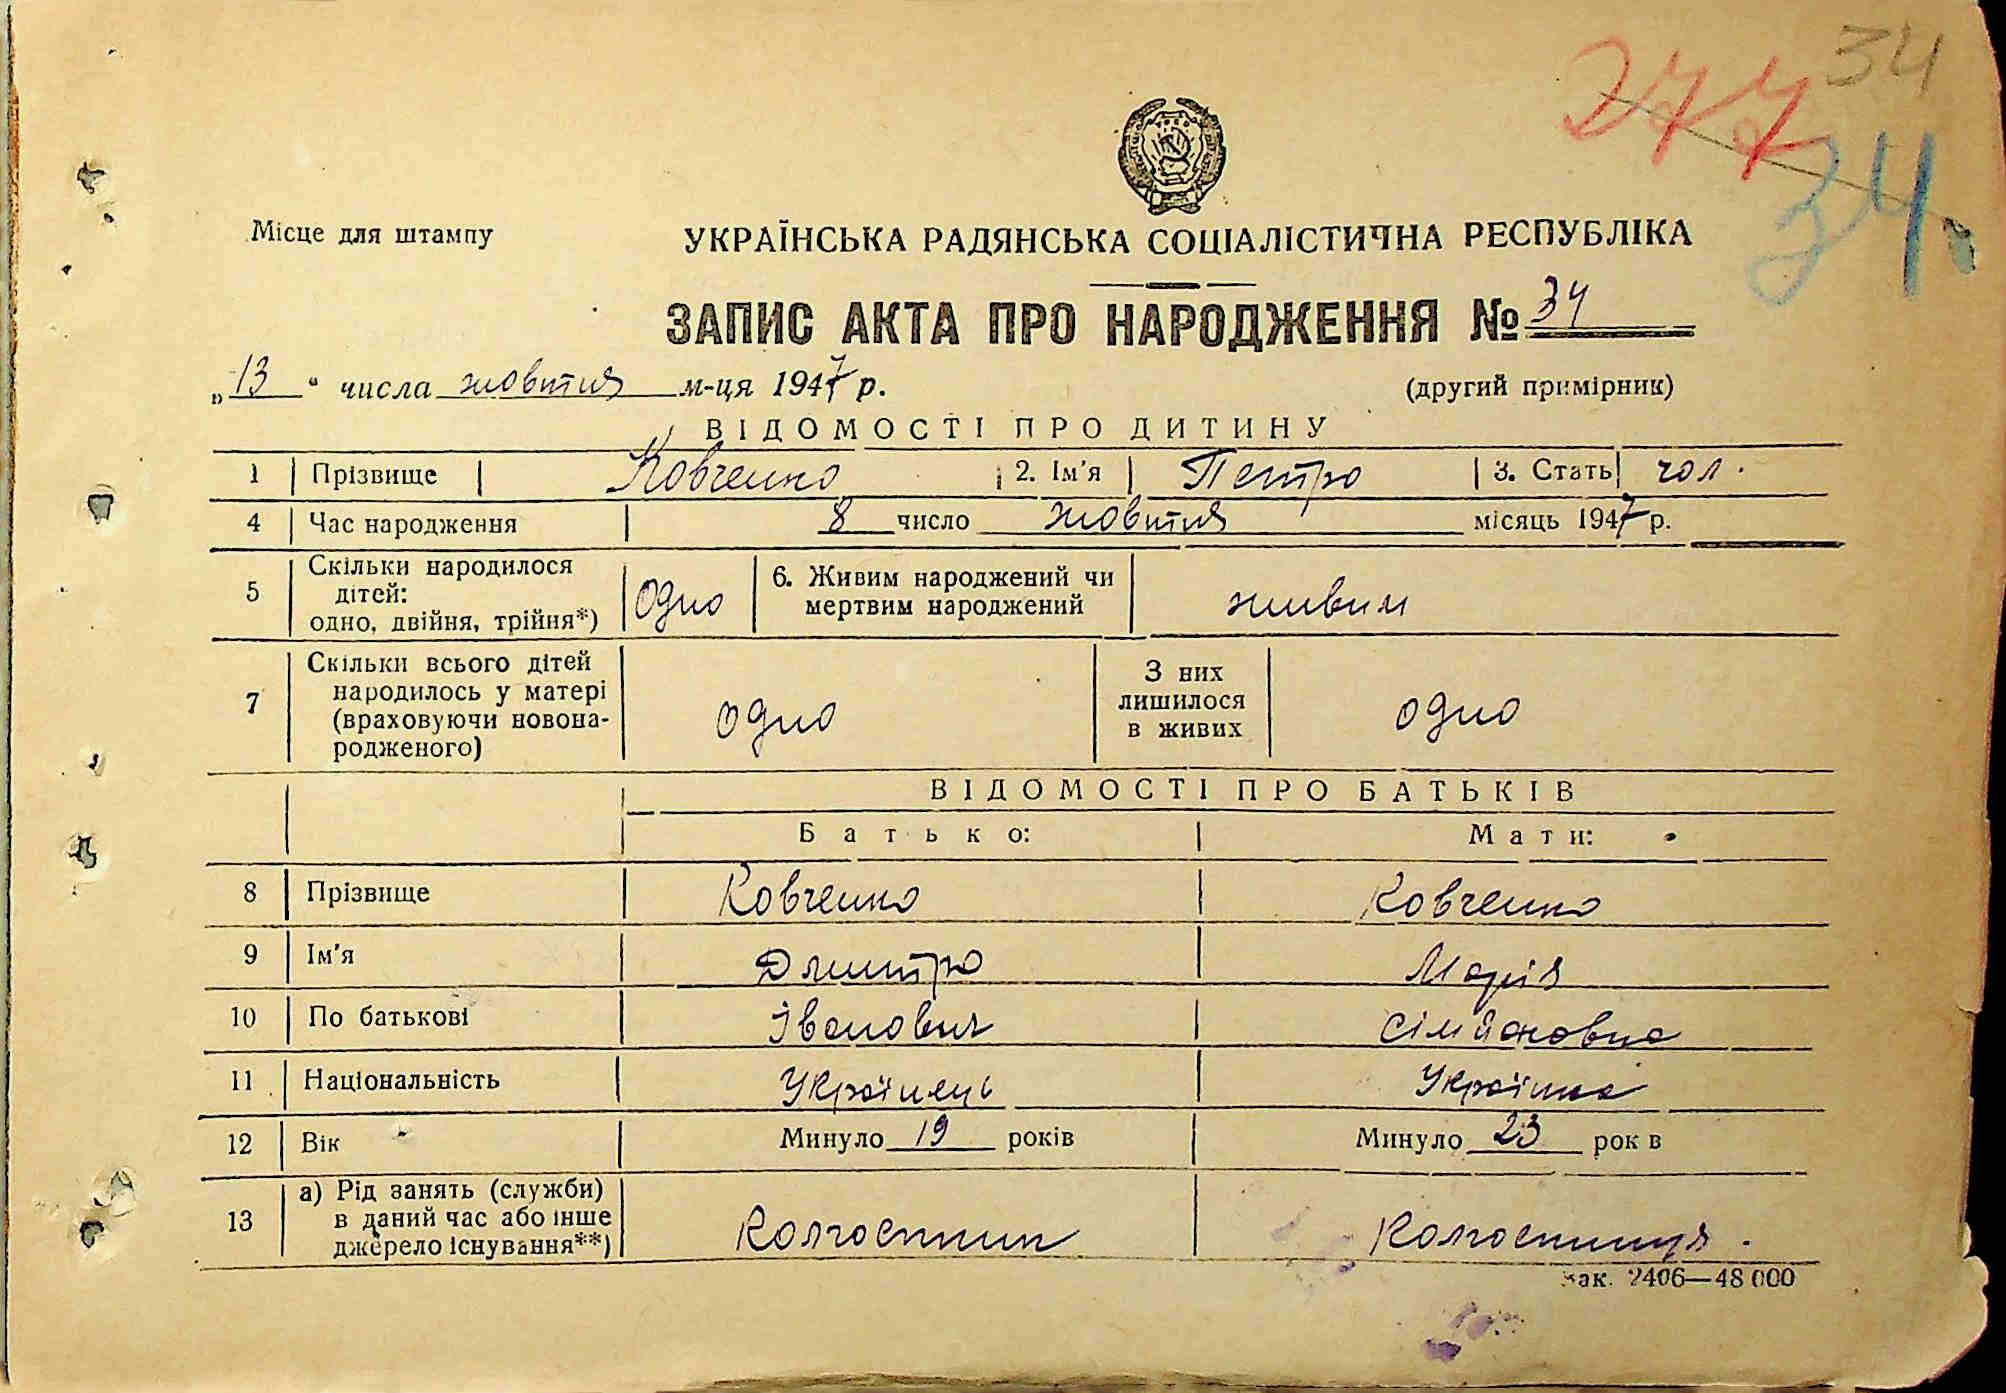 34
277
34
Місце для штампу
УКРАЇНСЬКА РАДЯНСЬКА СОЦІАЛІСТИЧНА РЕСПУБЛІКА
ЗАПИС АКТА ПРО НАРОДЖЕННЯ № 34
„13“ числа жовтня м-ця 1947 р. (другий примірник)
ВІДОМОСТІ ПРО ДИТИНУ
1 Прізвище Ковченко 2. Ім'я Петро 3. Стать чол.
4 Час народження 8 число жовтня місяць 1947 р.
5 Скільки народилося
дітей:
одно, двійня, трійня*) одно 6. Живим народжений чи
мертвим народжений живим
7 Скільки всього дітей
народилось у матері
(враховуючи новона-
родженого) одно З них
лишилося
в живих одно
ВІДОМОСТІ ПРО БАТЬКІВ
Батько: Мати:
8 Прізвище Ковченко Ковченко
9 Ім'я Дмитро Марія
10 По батькові Іванович Сімйоновна
11 Національність Українець Українка
12 Вік Минуло 19 років Минуло 23 рок в
13 а) Рід занять (служби)
в даний час або інше
джерело існування**) Колгоспник Колгоспниця.
Зак. 2406—48 000